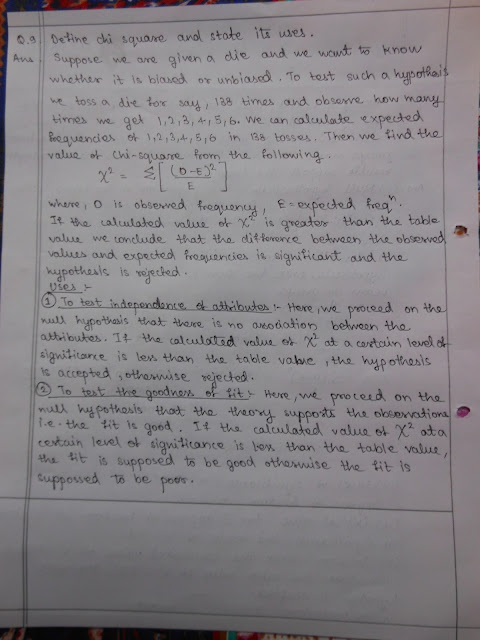 Q.9. Define chi square and state its uses.
Ans. Suppose we are given a die and we want to know
whether it is biased or unbiased. To test such a hypothesis
we toss a die for say, 138 times and observe how many
times we get 1,2,3,4,5,6. We can calculate expected
frequencies of 1,2,3,4,5,6 in 138 tosses. Then we find the
value of Chi-square from the following.
χ² = Σ[(O-E)²/E]
where, O is observed frequency, E = expected freqⁿ.
If the calculated value of χ² is greater than the table
value we conclude that the difference between the observed
values and expected frequencies is significant and the
hypothesis is rejected.
Uses :-
① To test independence of attributes :- Here, we proceed on the
null hypothesis that there is no association between the
attributes. If the calculated value of χ² at a certain level of
significance is less than the table value, the hypothesis
is accepted, otherwise rejected.
② To test the goodness of fit :- Here, we proceed on the
null hypothesis that the theory supports the observations
i.e. the fit is good. If the calculated value of χ² at a
certain level of significance is less than the table value,
the fit is supposed to be good otherwise the fit is
suppossed to be poor.